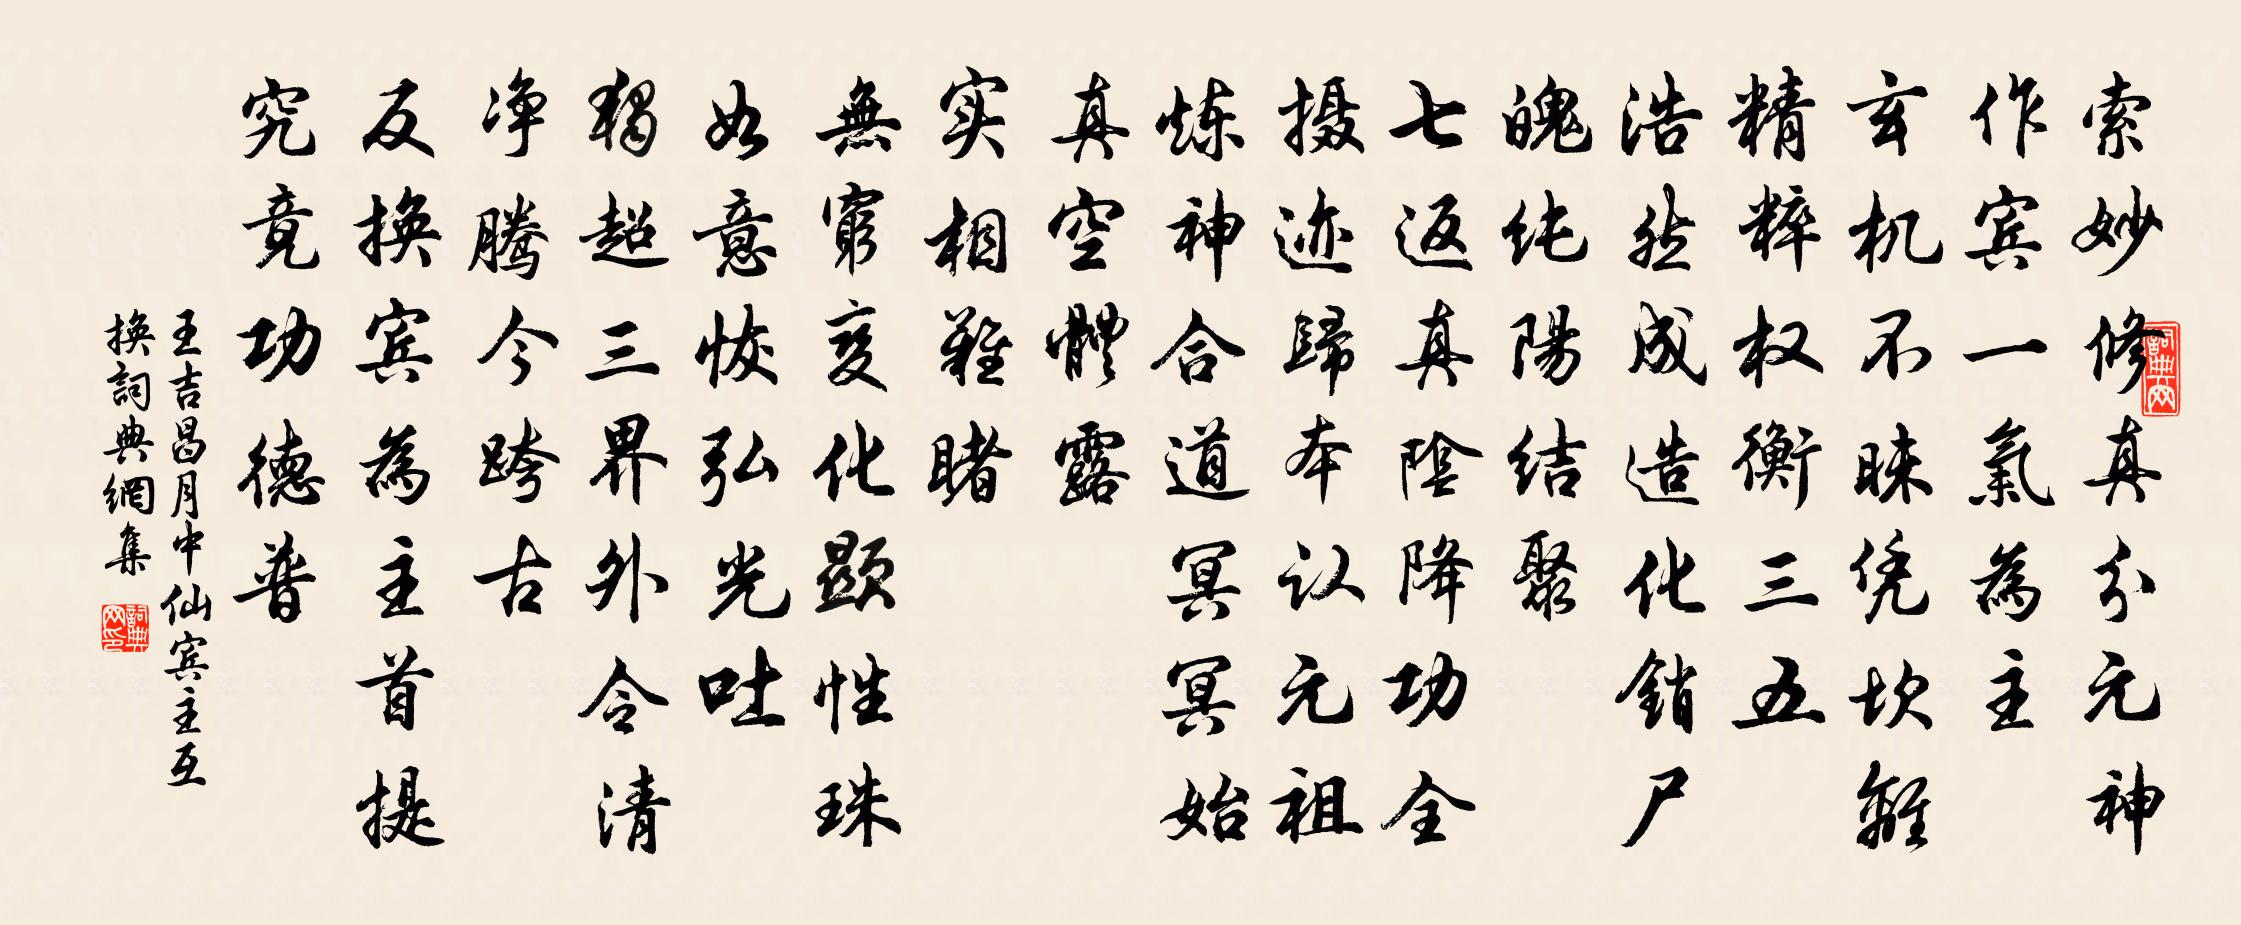 索妙修真分元神
作宾一氣為主
玄机不昧凭坎離
精粹权衡三五
浩然成造化銷尸
魄纯陽结聚
七返真陰降功全
摄迹歸本认元祖
炼神合道冥冥始
真空體露
实相難睹
無窮变化顯性珠
如意恢弘光吐
獨超三界外令清
净騰今跨古
反换宾為主首提
究竟功德普
王吉昌月中仙宾主互
换詞典網集
詞典网
詞典网印